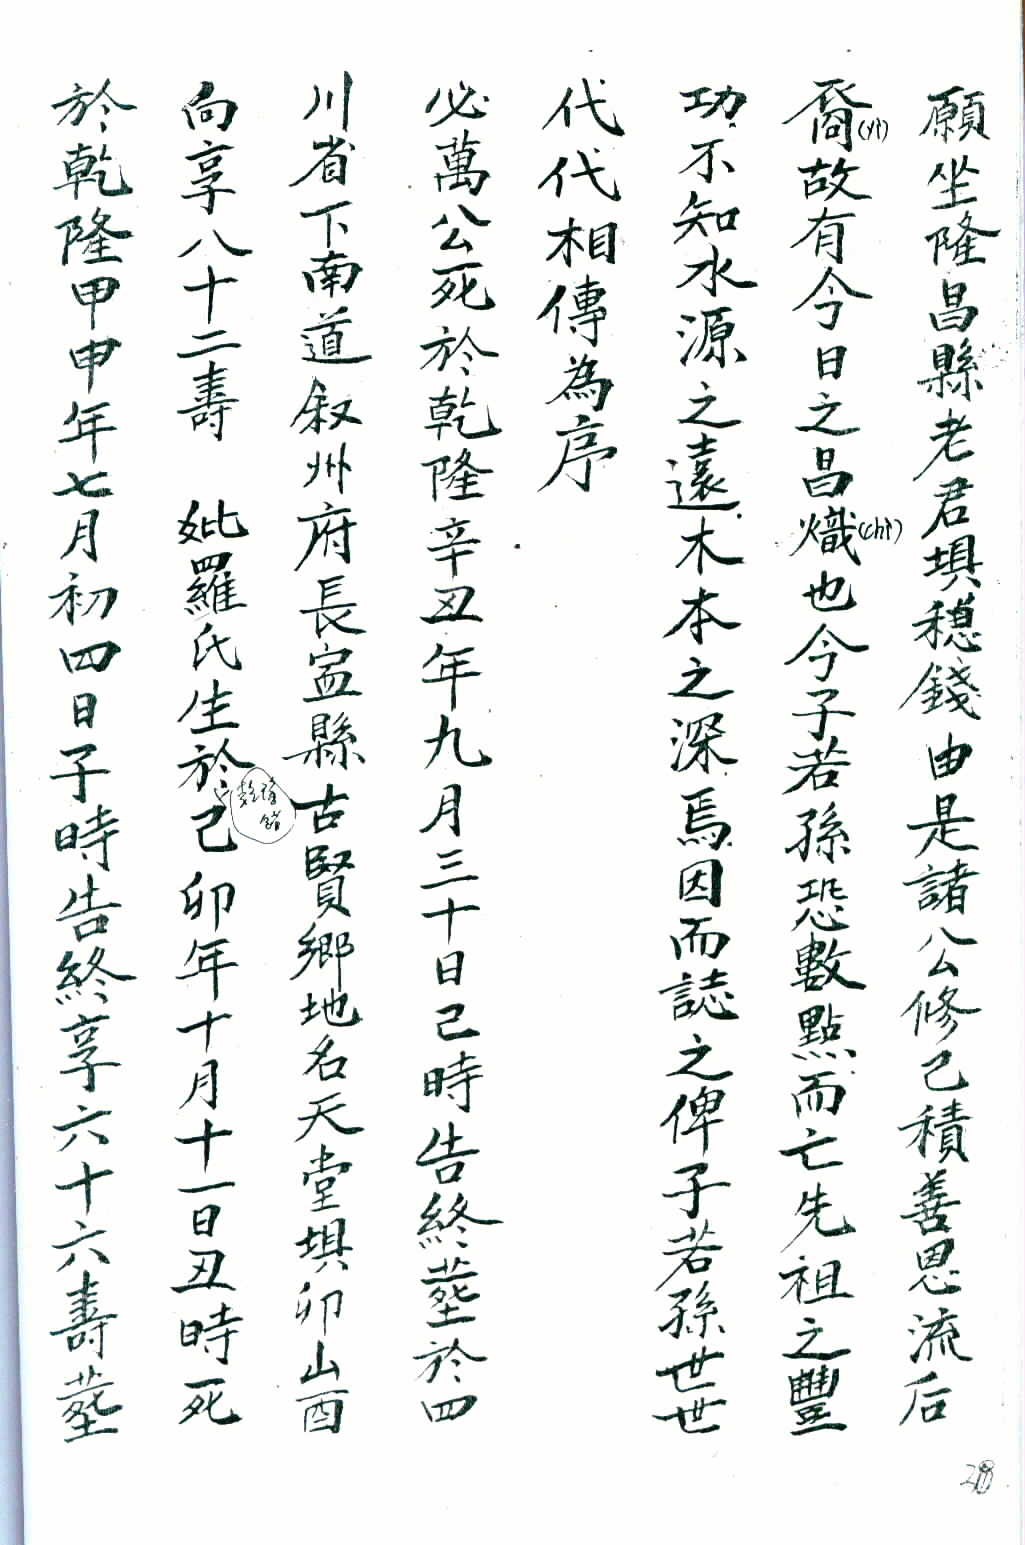 願坐隆昌縣老君埧穏錢由是諸公修己積善恩流后
裔(yi)故有今日之昌熾(chi)也今子若孫恐數點而亡先祖之豐
功不知水源之遠木本之深焉因而誌之俾子若孫世世
代代相傳為序
必萬公死於乾隆辛丑年九月三十日己時告終塟於四
川省下南道叙州府長寍縣古賢鄉地名天堂埧卯山酉
向享八十二壽 妣羅氏生於己卯年十月十一日丑時死
乾隆
於乾隆甲申年七月初四日子時告終享六十六壽塟